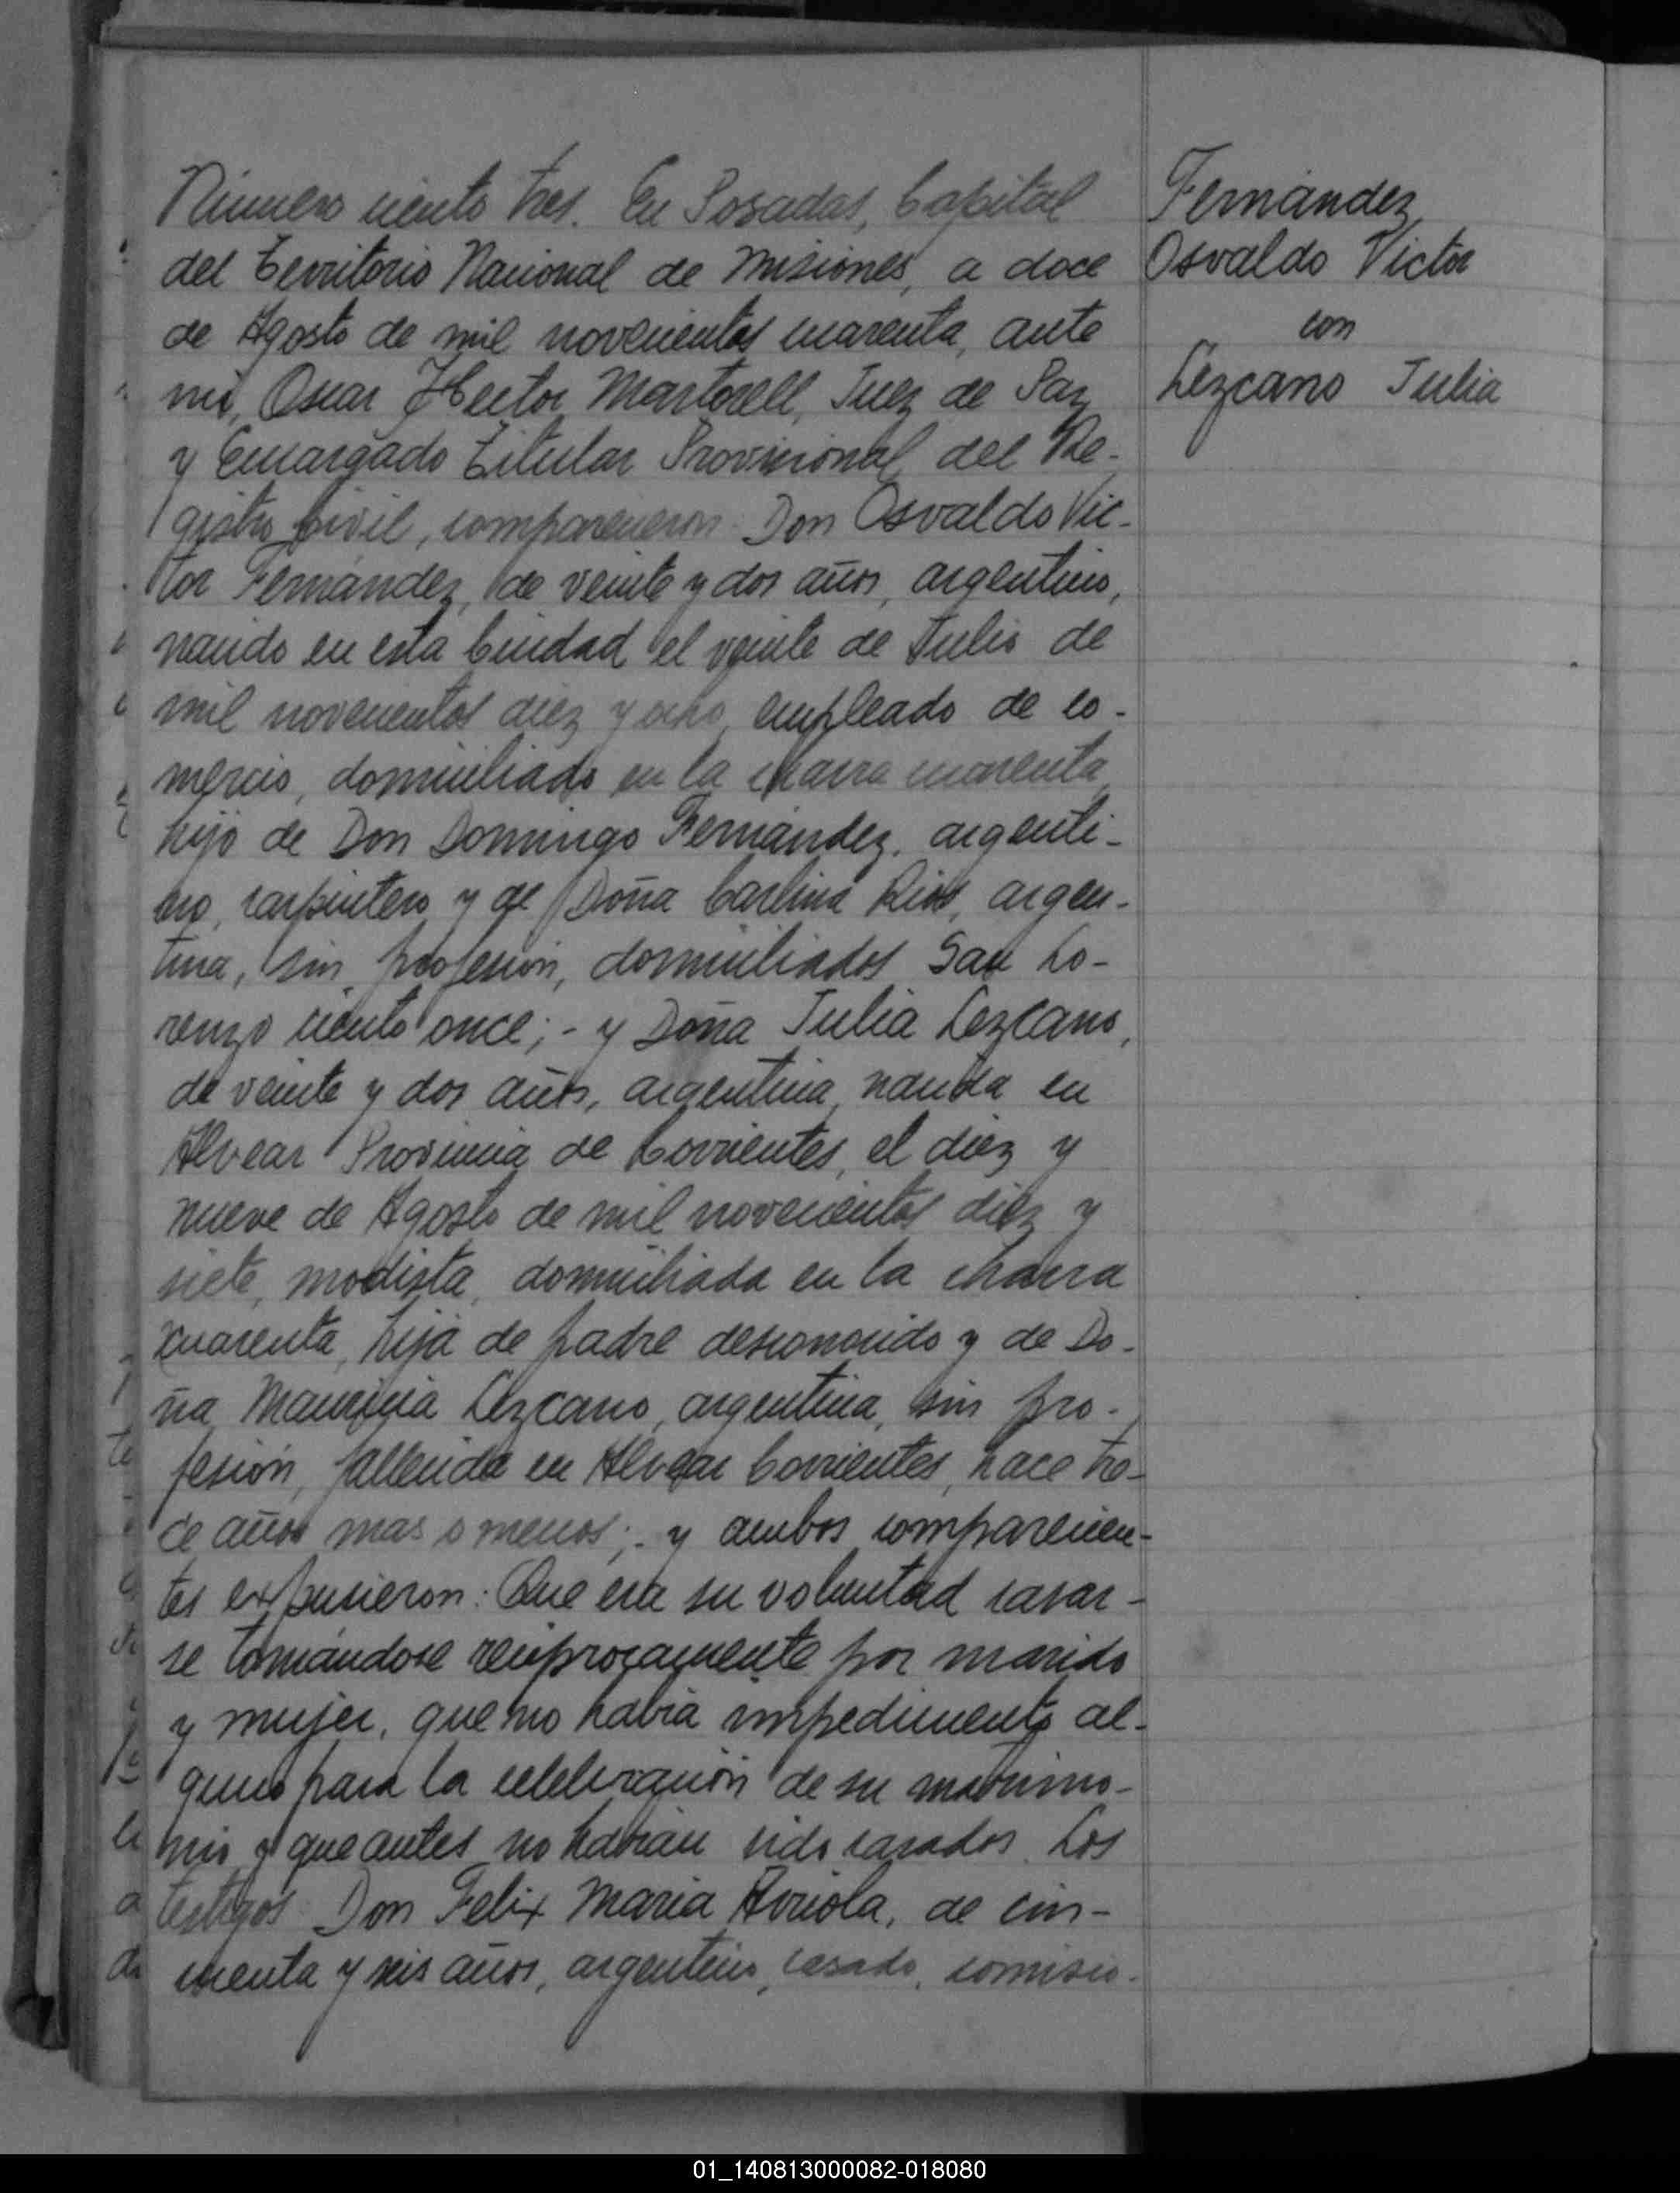 Número ciento tres. En Posadas, Capital
del Territorio Nacional de Misiones, a doce
de Agosto de mil novecientos cuarenta, ante
mí, Oscar Hector Martorell, Juez de Paz
y Encargado Titular Provisional del Re-
gistro Civil, comparecieron: Don Osvaldo Vic-
tor Fernández, de veinte y dos años, argentino,
nacido en esta Ciudad el veinte de Julio de
mil novecientos diez y ocho, empleado de co-
mercio, domiciliado en la chacra cuarenta,
hijo de Don Domingo Fernández, argenti-
no, carpintero y de Doña Carlina Rios, argen-
tina, sin profesión, domiciliados San Lo-
renzo ciento once;- y Doña Julia Lezcano,
de veinte y dos años, argentina, nacida en
Alvear Provincia de Corrientes, el diez y
nueve de Agosto de mil novecientos diez y
siete, modista, domiciliada en la chacra
cuarenta, hija de padre desconocido y de Do-
ña Lezcano, argentina, sin pro-
fesión, fallecida en Alvear Corrientes, hace tre-
ce años mas o menos;- y ambos comparecien-
tes expusieron: Que era su voluntad casar-
se tomándose recíprocamente por marido
y mujer, que no había impedimento al-
guno para la celebración de su matrimo-
nio y que antes no habían sido casados. Los
testigos Don Felix Maria Arriola, de cin-
cuenta y seis años, argentino, casado, comisio-
Fernández
Osvaldo Victor
con
Lezcano Julia
01_140813000082-018080